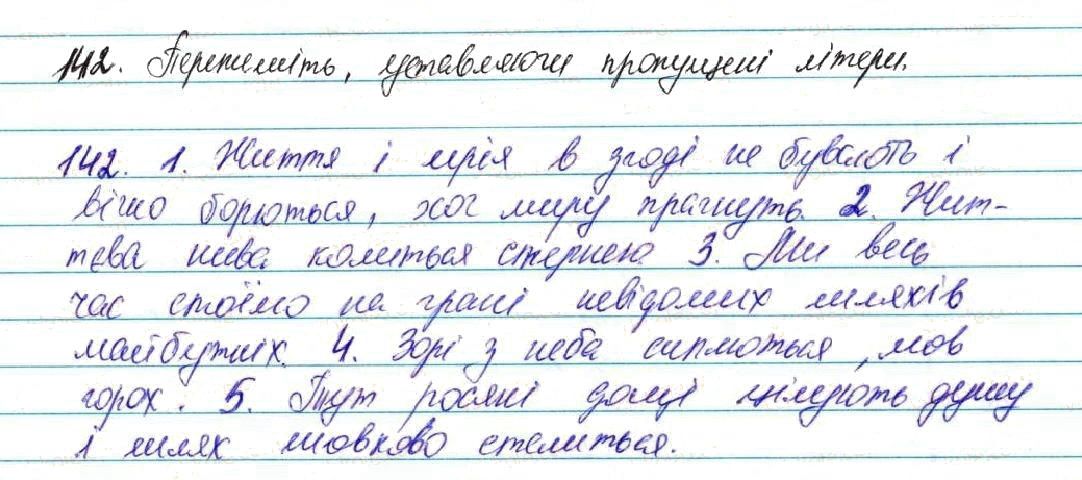 142. Перепишіть, уставляючи пропущені літери.
142. 1. Життя і мрія в згоді не бувають і
вічно борються, хоч миру прагнуть. 2. Жит-
тєва нива колиться стернею 3. Ми весь
час стоїмо на грані невідомих шляхів
майбутніх. 4. Зорі з неба сиплються, мов
горох. 5. Тут росяні дощі цілують душу
і шлях шовково стелиться.